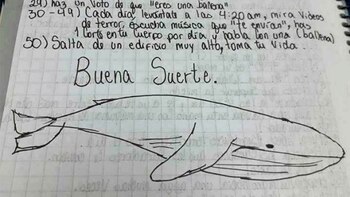 29) haz un Voto de que "eres una ballena"
30-49) Cada día levántate a las 4:20 am, mira Videos
de terror, escucha música que "te envían", haz
1 corte en tu cuerpo por día y habla con una (ballena)
50) Salta de un edificio muy alto, toma tu Vida.
Buena Suerte.